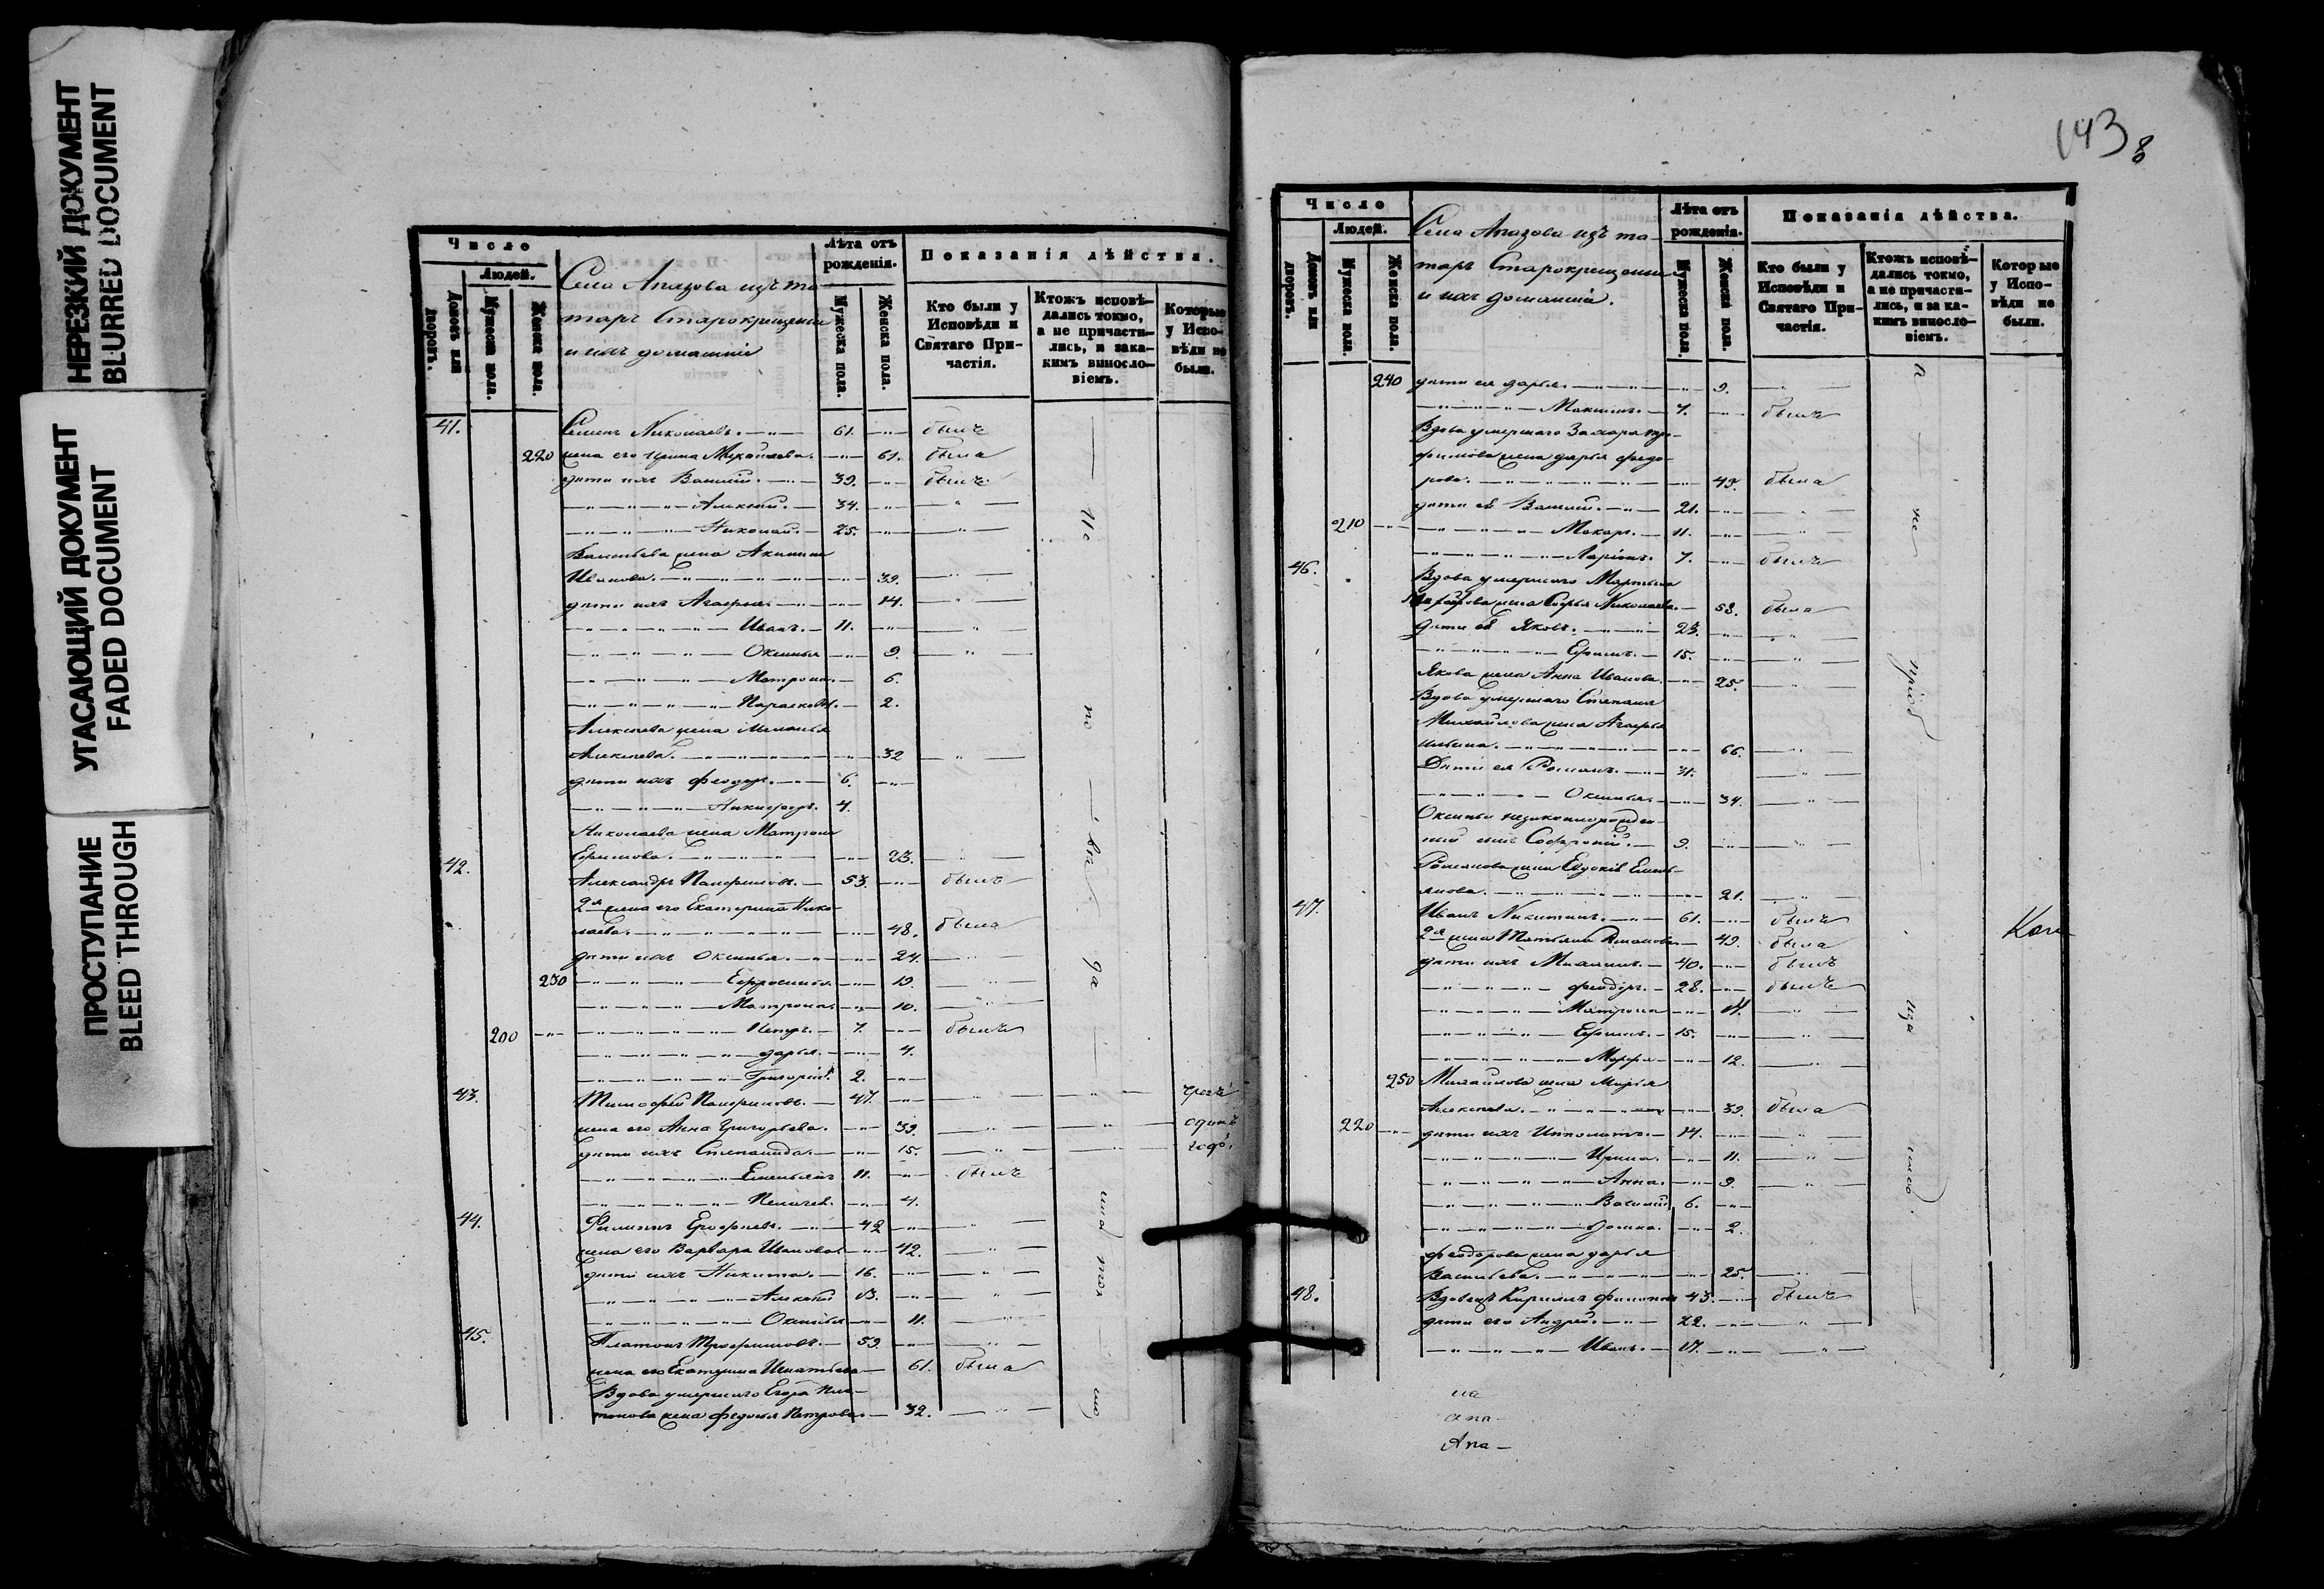 НЕРЕЗКИЙ ДОКУМЕНТ
BLURRED DOCUMENT
УГАСАЮЩИЙ ДОКУМЕНТ
FADED DOCUMENT
ПРОСТУПАНИЕ
BLEED THROUGH
Число
Людей.
Домовъ или дворовъ.
Мужеска пола.
Женска пола.
Села Апазова изъ та-
таръ Старокрещены
и ихъ домашніе
Лѣта отъ рожденія.
Мужеска пола.
Женска пола.
Показанія дѣйства.
Кто были у Исповѣди и Святаго При-частія.
Ктожъ исповѣ-дались токмо, а не причасти-лись, и зака-кимъ винносло-віемъ.
Которые у Испо-вѣди не были.
41. Семенъ Николаевъ. 61. былъ
220 жена его Ирина Михайлова. 61. была
дѣти ихъ Василій. 39. былъ
Алексѣй. 34.
Николай. 25.
Васильева жена Акилина
Иванова. 39.
дѣти ихъ Агафья. 14.
Иванъ. 11.
Оксинья 9.
Матрона. 6.
Параскова. 2.
Алексѣева жена Меланья
Алексѣева. 32
дѣти ихъ Феодоръ. 6.
Никифоръ. 4.
Николаева жена Матрона
Ефимова. 23.
42. Александръ Панфиловъ. 53. былъ
2я жена его Екатерина Нико-
лаева. 48. была
дѣти ихъ Оксинья. 24.
230 Ефросинья 19.
Матрона. 10.
200 Петръ. 7. былъ
Дарья. 4.
Григорій. 2.
43. Тимофей Панфиловъ. 47. чрезъ
жена его Анна Григорьева. 39. одинъ
дѣти ихъ Степанида. 15. годъ.
Емельянъ 11. былъ
Пелагея. 4.
44. Филиппъ Ерофѣевъ. 42
жена его Варвара Иванова 42.
дѣти ихъ Никита. 16.
Алексѣй 13.
Оксинья 11.
45. Платонъ Трофимовъ. 59.
жена его Екатерина Игнатьева 61. была
Вдова умершаго Егора Пла-
тонова жена Федосья Петрова. 32.
143
8
Число
Людей.
Домовъ или дворовъ.
Мужеска пола.
Женска пола.
Села Апазова изъ та-
таръ Старокрещены
и ихъ домашніе.
Лѣта отъ рожденія.
Мужеска пола.
Женска пола.
Показанія дѣйства.
Кто были у Исповѣди и Святаго При-частія.
Ктожъ исповѣ-дались токмо, а не причасти-лись, и за ка-кимъ винносло-віемъ.
Которые у Испо-вѣди не были.
240 дѣти ея Дарья. 9.
Максимъ. 7. былъ
Вдова умершаго Захара Тро-
фимова жена Дарья Федо-
рова. 49. была
дѣти ея Василій. 21.
210 Макаръ. 11.
Ларіонъ. 7. былъ
46. Вдова умершаго Мартына
жена Софья Николаева. 53. была
дѣти ея Яковъ. 23.
Ефимъ. 15.
Якова жена Анна Иванова. 25.
Вдова умершаго Степана
Михайлова жена Агафья
Ильина. 66.
Дѣти ея Романъ. 31.
Оксинья. 34.
Оксиньи незаконнорожден-
ный сынъ Софроній. 9.
Романова жена Евдокія Емель-
янова. 21.
47. Иванъ Никитинъ. 61. былъ
2я жена Татьяна Романова 49. была
дѣти ихъ Михаилъ. 40. былъ
Феодоръ. 28. былъ
Матрона 17.
Ефимъ. 15.
Марфа 12.
250 Михайлова жена Марья
Алексѣева. 39. была
220 дѣти ихъ Ипполитъ. 14.
Ирина. 11.
Анна. 9.
Василій 6.
Домна. 2.
Феодорова жена Дарья
Васильева. 25.
48. Вдовецъ Кирилъ Филиповъ 43. былъ
дѣти его Андрей. 22.
Иванъ. 17.
на
апа-
Апа-